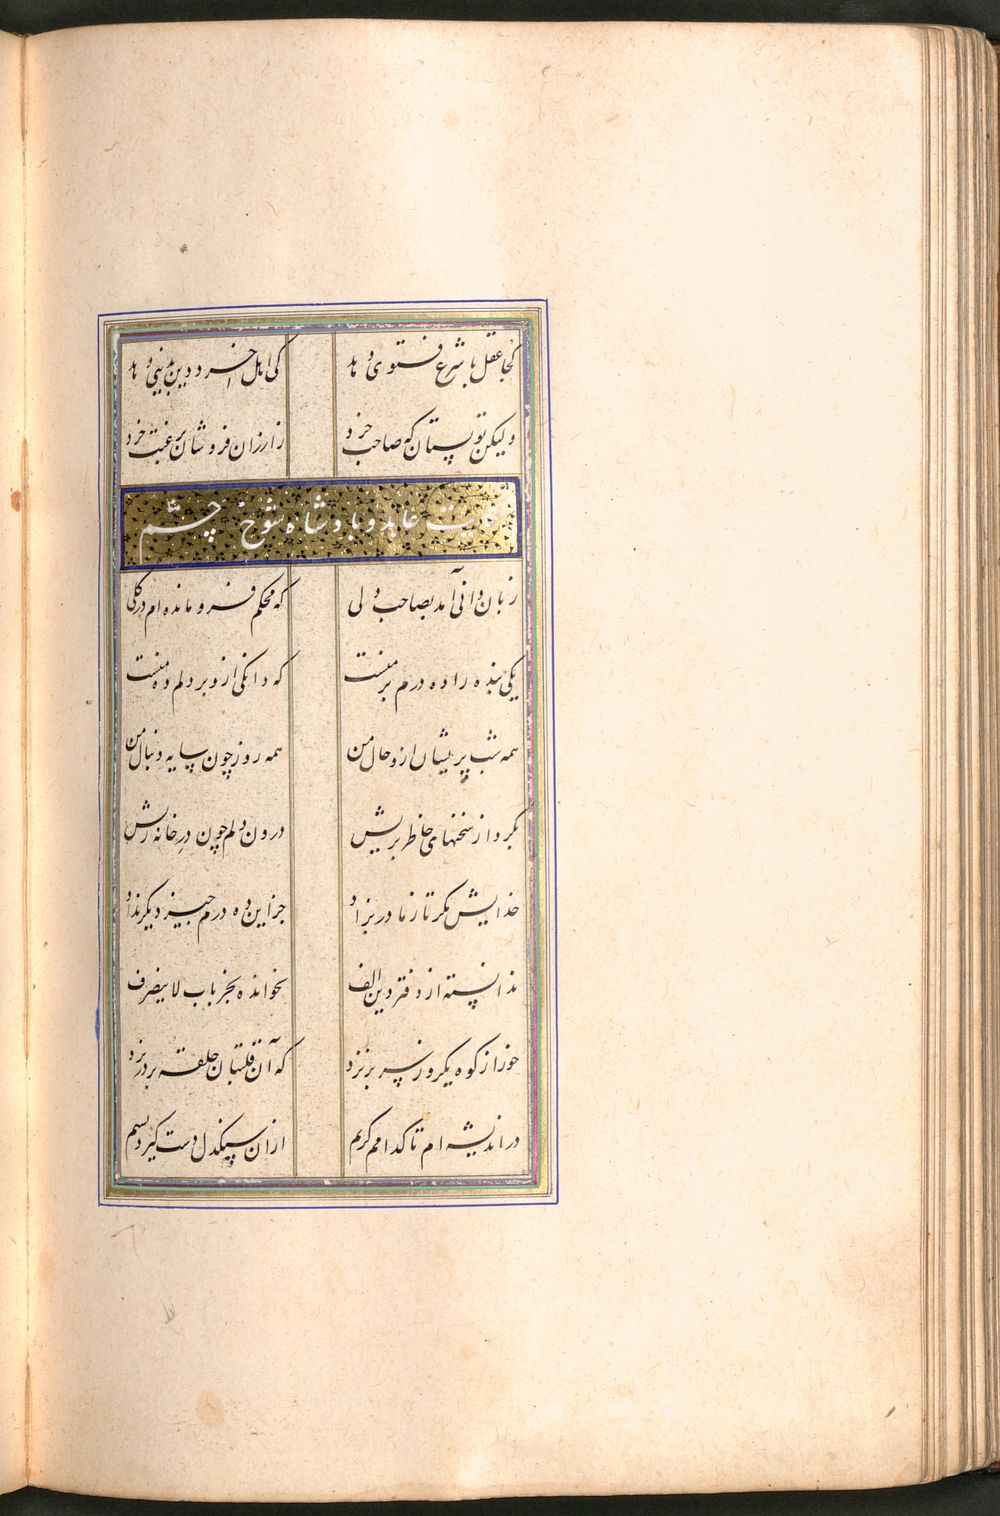 کجا عقل با شرع فتوی دهد کی اهل خرد دین بدنیی دهد
ولیکن تو بستان که صاحب خرد ز ارزان فروشان برغبت خرد
حکایت عابد و پادشاه شوخ چشم
زبان دانی آمد بصاحب دلی که محکم فرو مانده ام در گلی
یکی بنده را ده درم بر منست که دانکی ازو بر دلم ده منست
همه شب پریشان ازو حال من همه روز چون سایه دنبال من
بکرد از سخنهای خاطر پریش درون دلم چون در خانه ریش
خدایش مکر تا ز مادر بزاد جز این ده درم چیز دیکر نداد
ندانسته از دفتر دین الف نخوانده بجز باب لاینصرف
خور از کوه یکروز سر بر نزد که آن قلتبان حلقه بر در نزد
در اندیشه ام تا کدامم کریم ازان سنکدل دست کیرد بسیم